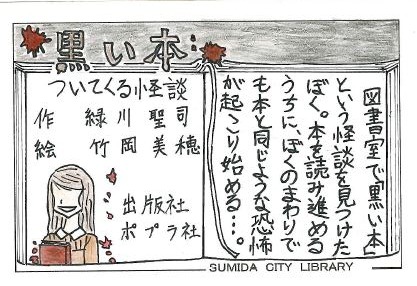 黒い本
ついてくる怪談
作 緑川聖司
絵 竹岡美穂
出版社
ポプラ社
図書室で「黒い本」
という怪談を見つけた
ぼく。本を読み進める
うちに、ぼくのまわりで
も本と同じような恐怖
が起こり始める…。
SUMIDA CITY LIBRARY